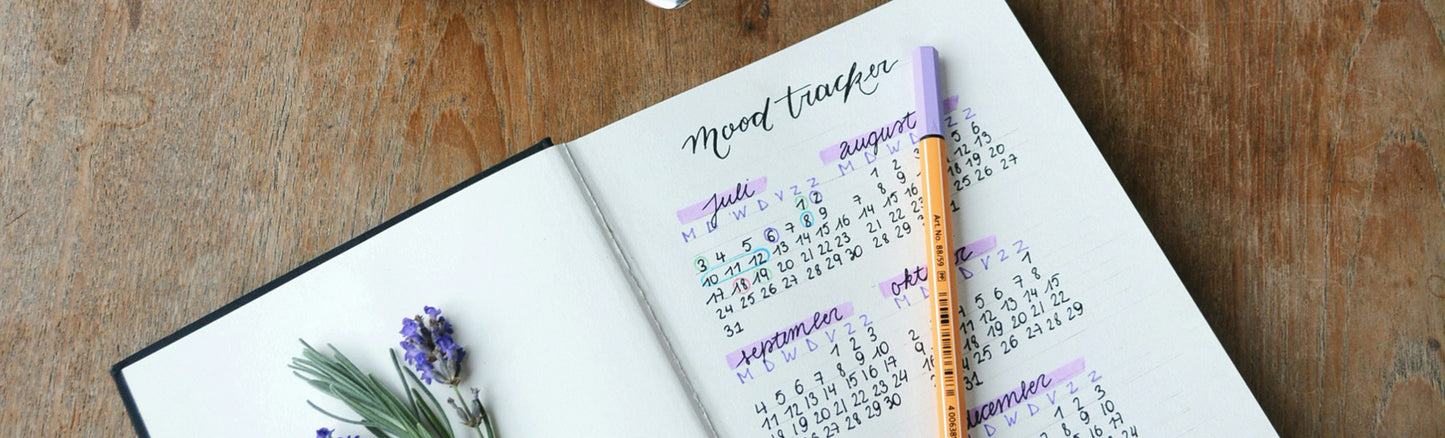 mood tracker
juli
M D W D V Z Z
1 2
3 4 5 6 7 8 9
10 11 12 13 14 15 16
17 18 19 20 21 22 23
24 25 26 27 28 29 30
31
august
M D W D Z Z
1 2 3 5 6
7 8 9 12 13
14 15 16 18 19 20
21 22 23 25 26 27
28 29 30 31
september
M D W D V Z Z
1 2 3
4 5 6 7 8 9 10
11 12 13 14 15 16 17
18 19 20 21 22 23 24
28 29 30
okt
M D D V Z Z
1
2 5 6 7 8
9 11 12 13 14 15
16 18 19 20 21 22
24 25 26 27 28 29
31
december
D W D V Z Z
1 2 3
8 9 10
Art. No. 88/59
4 00638